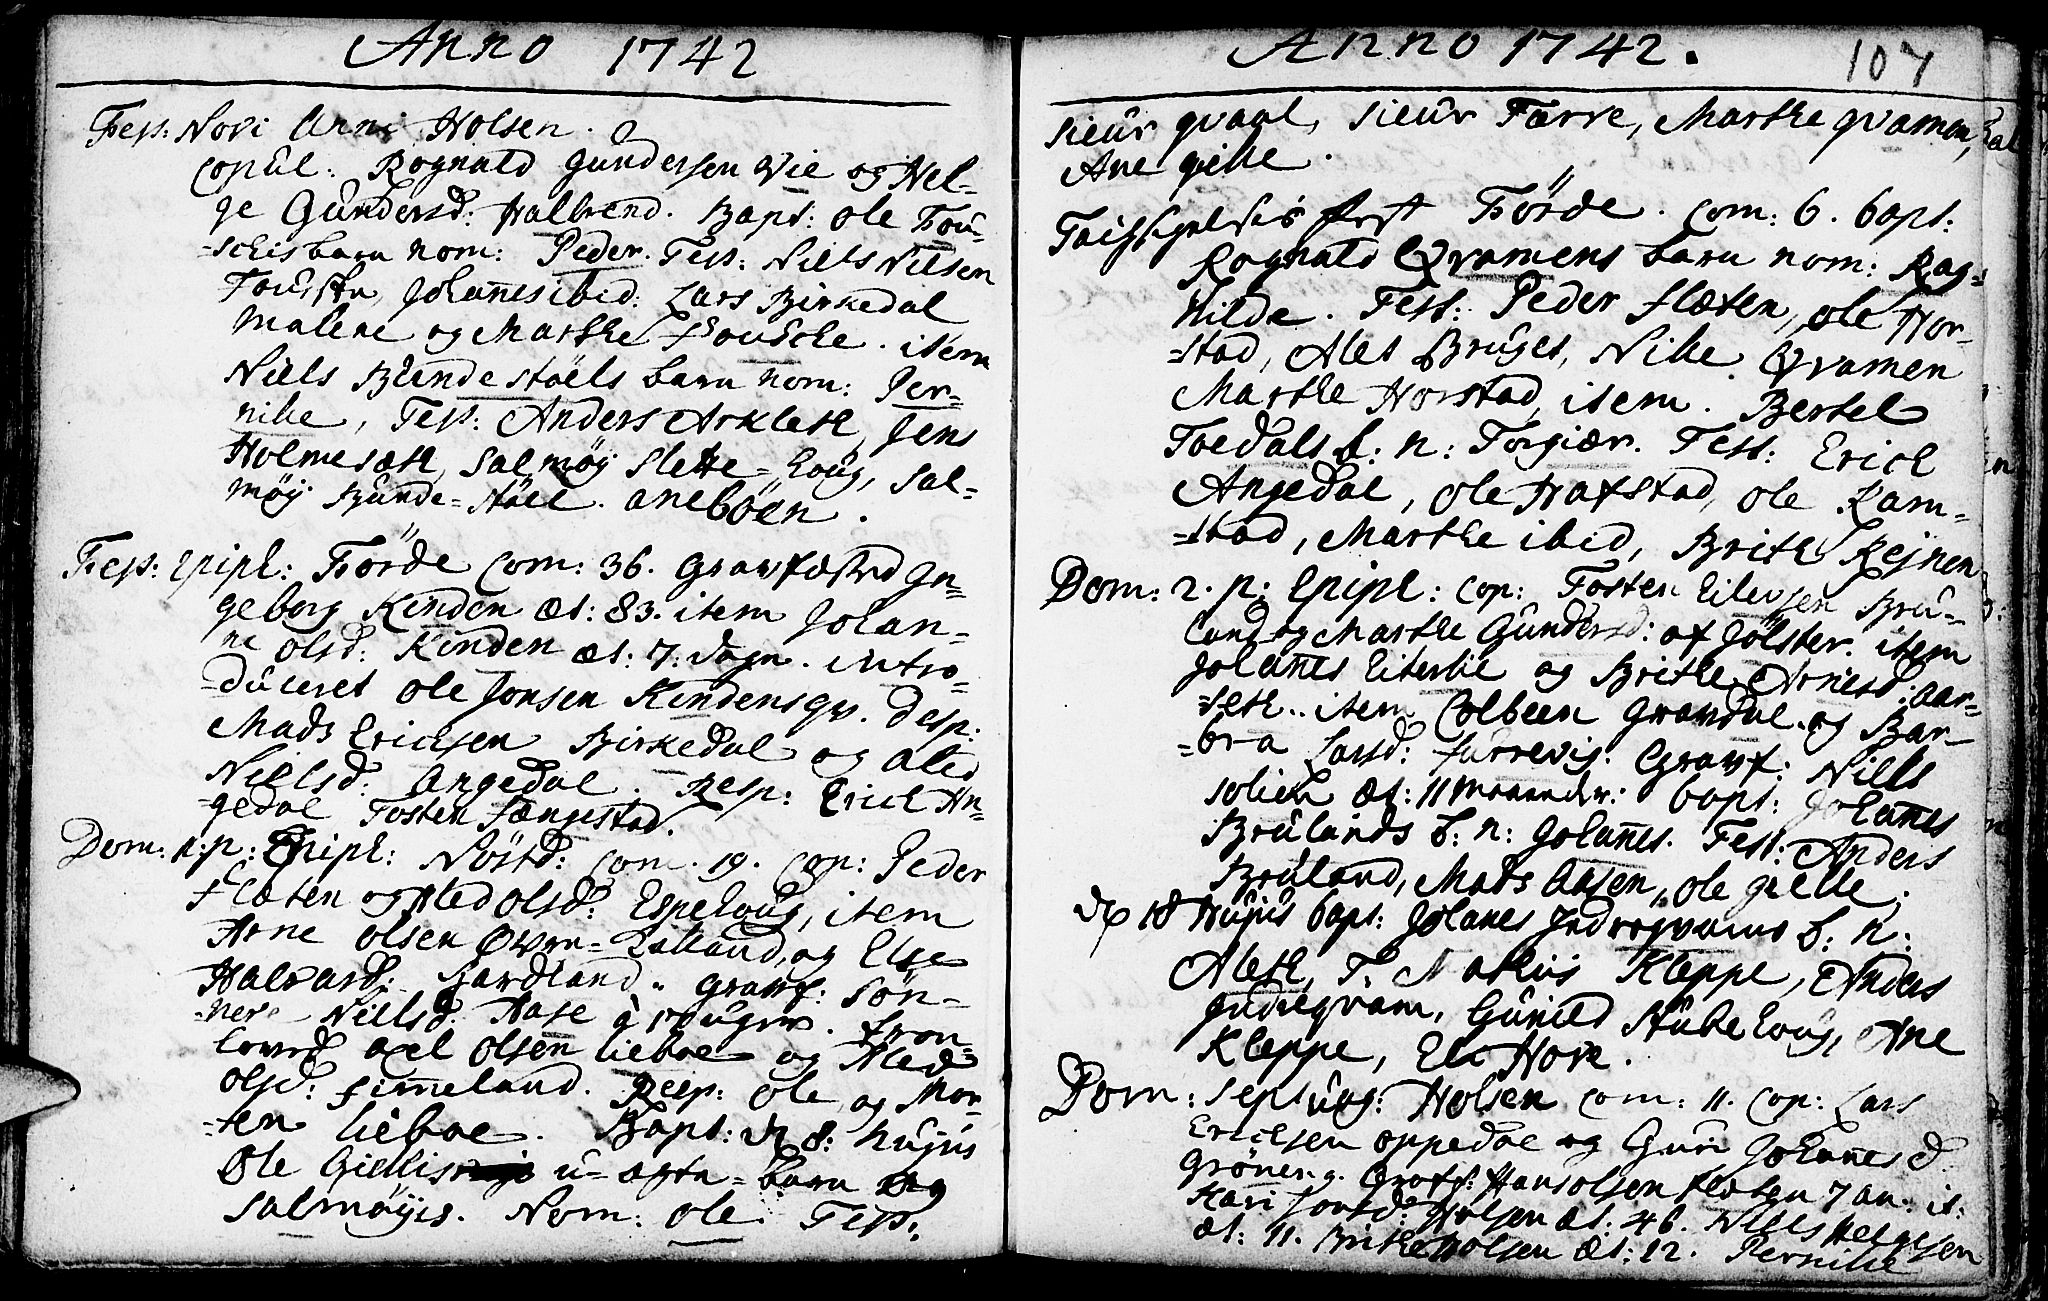 Anno 1742
Fest: Novi Anni Holsen.
Copul: Rognald Gundersen Vie og Hel-
ge Gundersd: Halbrend. Bapt: Ole Fou-
-sches barn nom: Peder. Test: Niels Nilsen
Johannes ibid: Lars Birkedal
Malene og Marthe Fousche. item
Niels Bundestöels barn nom: Per-
nille, Test: Anders Arkleth, Jens
Holmeseth, Salmöy Slette-houg, Sal-
möy Bunde-Stöel. Ane böen.
Fest: Epiph: Förde Com: 36. Graufæsted In-
geborg Kinden æt: 83. item Johan-
ne Olsd: Kinden æt: 7: dagr. intro-
-duceret Ole Jonsen Kindens qv. desp:
Mads Erichsen Birkedal og Aled
Nielsd: Angedal. Resp: Erich An-
-gedal Tosten Længestad.
Dom: 1. p: Epiph: Nöstd: Com. 19. Cop: Peder
Flæten og Aled Olsd: Espehoug, item
Arne Olsen og Else
Halvardsd: Bardland. Grauf: Sön-
Nielsd. Hafe Tron-
Axel Olsen Lieboe og Aled
Olsd: Fimmeland. Resp: Ole og Mor-
-ten Lieboe. Bapt: d 8: hujus
Ole Giellis u-ægte-barn
Salmöyes. Nom: Ole. Test:
Anno 1742. 107
Sieur Qvaal, Sieur Færre, Marthe Qvamen,
Ane Gielle.
fest Förde. Com: 6. bapt:
Rognald Qvamens barn nom: Rag-
hilde. Test: Peder Flæten, Ole Hor-
-stad, Alet Bruges, Nille Qvamen
Marthe Horstad, item. Bertel
Toedals b: n: Torgier. Test: Erich
Angedal, Ole Hafstad, Ole Ram-
-stad, Marthe ibid, Brithe Rejnen
Dom: 2. p: Epiph: Cop: Tosten Eilevsen Bru-
land og Marthe Gundersd: af Jölster. item
Johannes Eiterlie og Brithe Arnesd: Aar-
-seth. item Colbeen Gravdal og Bar-
-bra Larsd: Farrevig. Grauf: Niels
Solich æt: 11 maaneder: bapt: Johannes
Brulands b: n: Johannes. Test: Anders
Bruland, Mads Aasen, Ole Gielle,
d 18 hujus bapt: Johannes b: n:
Aleth, T. Mathis Kleppe, Anders
Gunild Stubehoug, Ane
Kleppe, Eli Hove.
Dom: Septuag: Holsen Com: 11. Cop: Lars
Erichsen Oppedal og Guri Johannesd
Gröneng. Grauf: Hans Olsen Flæten 7 an: it:
Kari Jonsd: Holsen æt: 46. Niels Helgesen
æt: 11. Brithe Holsen æt: 12. Pernille